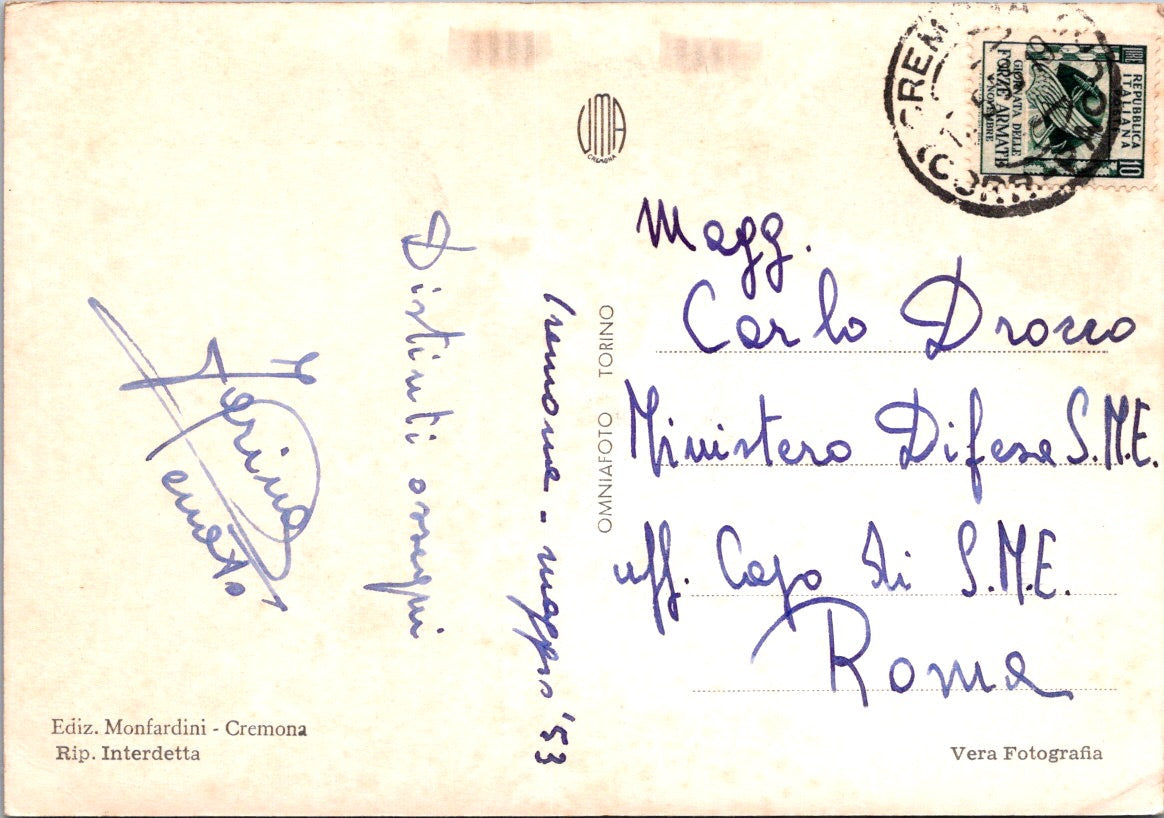 Cremona - maggio '53
Distinti ossequi
UMA
CREMONA
OMNIAFOTO TORINO
REPUBBLICA
ITALIANA
LIRE 10
GIORNATA DELLE
FORZE ARMATE
4 NOVEMBRE
Magg.
Carlo Drozzo
Ministero Difesa S.M.E.
uff. Capo di S.M.E.
Roma
Ediz. Monfardini - Cremona
Rip. Interdetta
Vera Fotografia